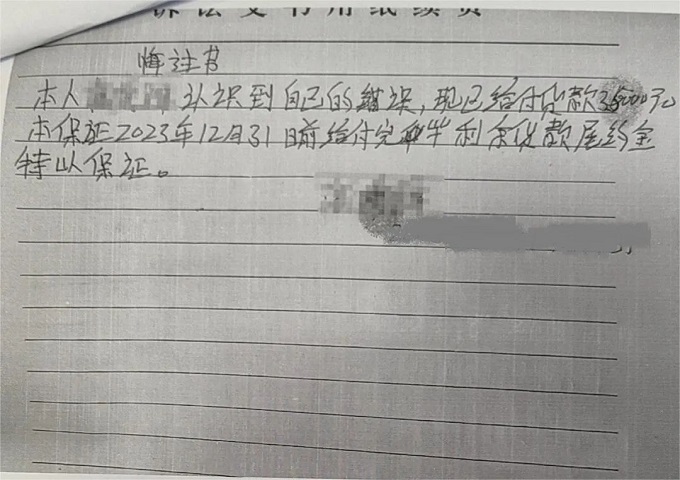 诉讼文书用纸续页
悔过书
本人 认识到自己的错误，现已给付货款35000元
本保证2023年12月31日前给付完毕利余货款尾约金
特以保证。